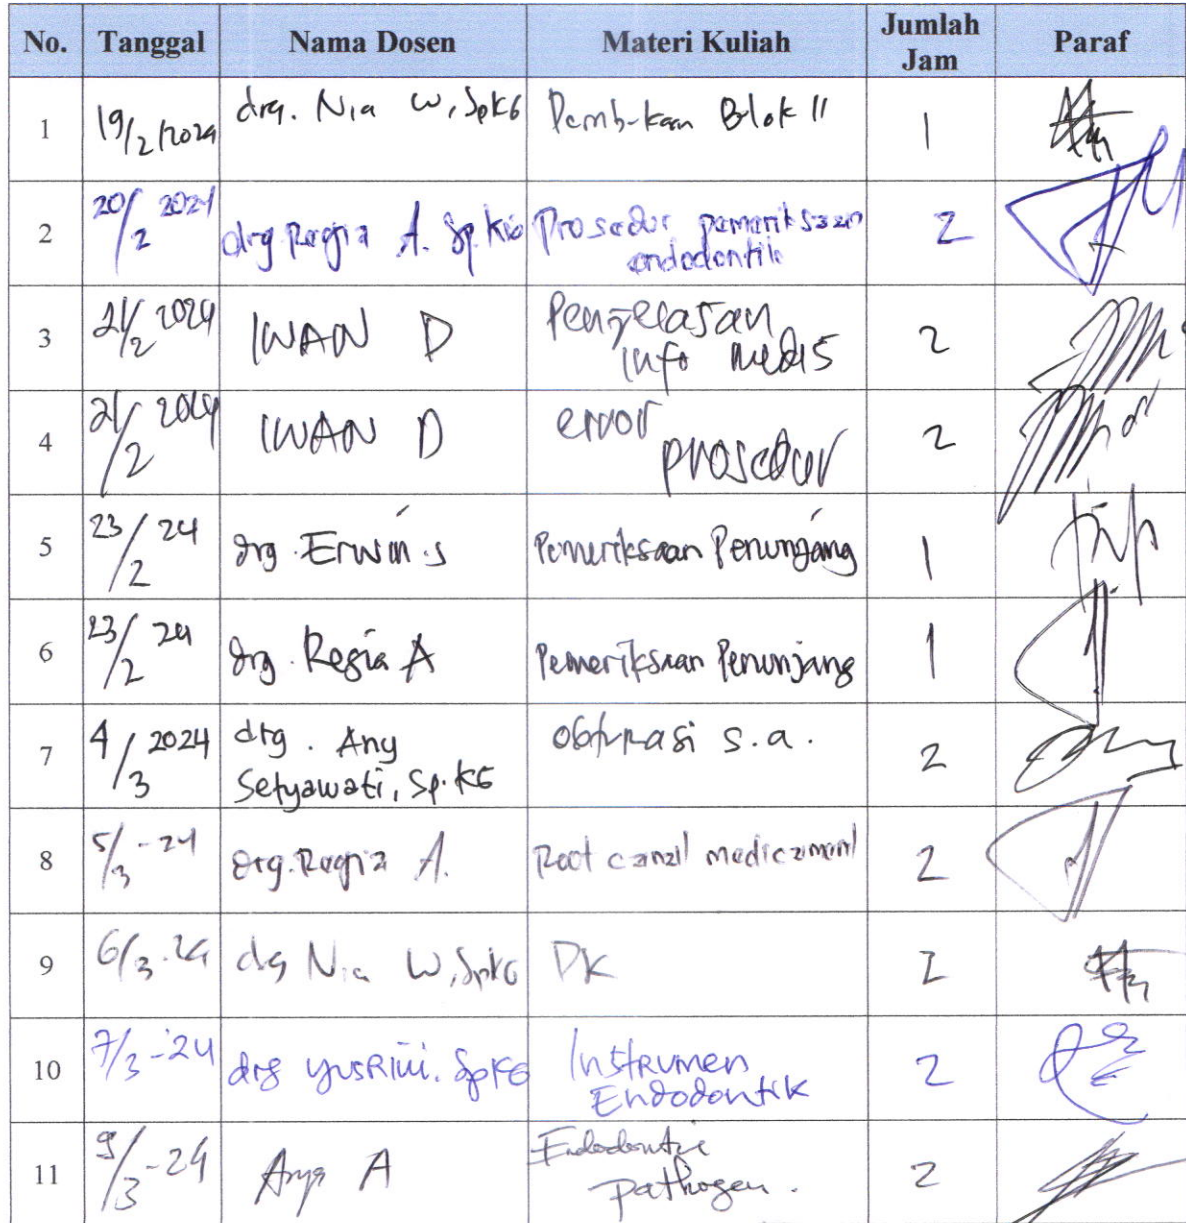 No. Tanggal Nama Dosen Materi Kuliah Jumlah Jam Paraf
1 19/2/2024 drg. Nia W, SpKG Pembukaan Blok 11 1
2 20/2 2024 drg. Regia A. Sp.KG Prosedur pemeriksaan endodontik 2
3 21/2 2024 IWAN D Penjelasan info medis 2
4 21/2 2024 IWAN D error prosedur 2
5 23/2 24 drg. Erwin.s Pemeriksaan Penunjang 1
6 23/2 24 drg. Regia A Pemeriksaan Penunjang 1
7 4/3 2024 drg. Any Setyawati, Sp.KG obturasi s.a. 2
8 5/3-24 drg. Regia A. Root canal medicament 2
9 6/3-24 drg Nia W, SpKG DK 2
10 7/3-'24 drg yusRini. SpKG Instrumen Endodontik 2
11 9/3-24 A Endodontic pathogen. 2